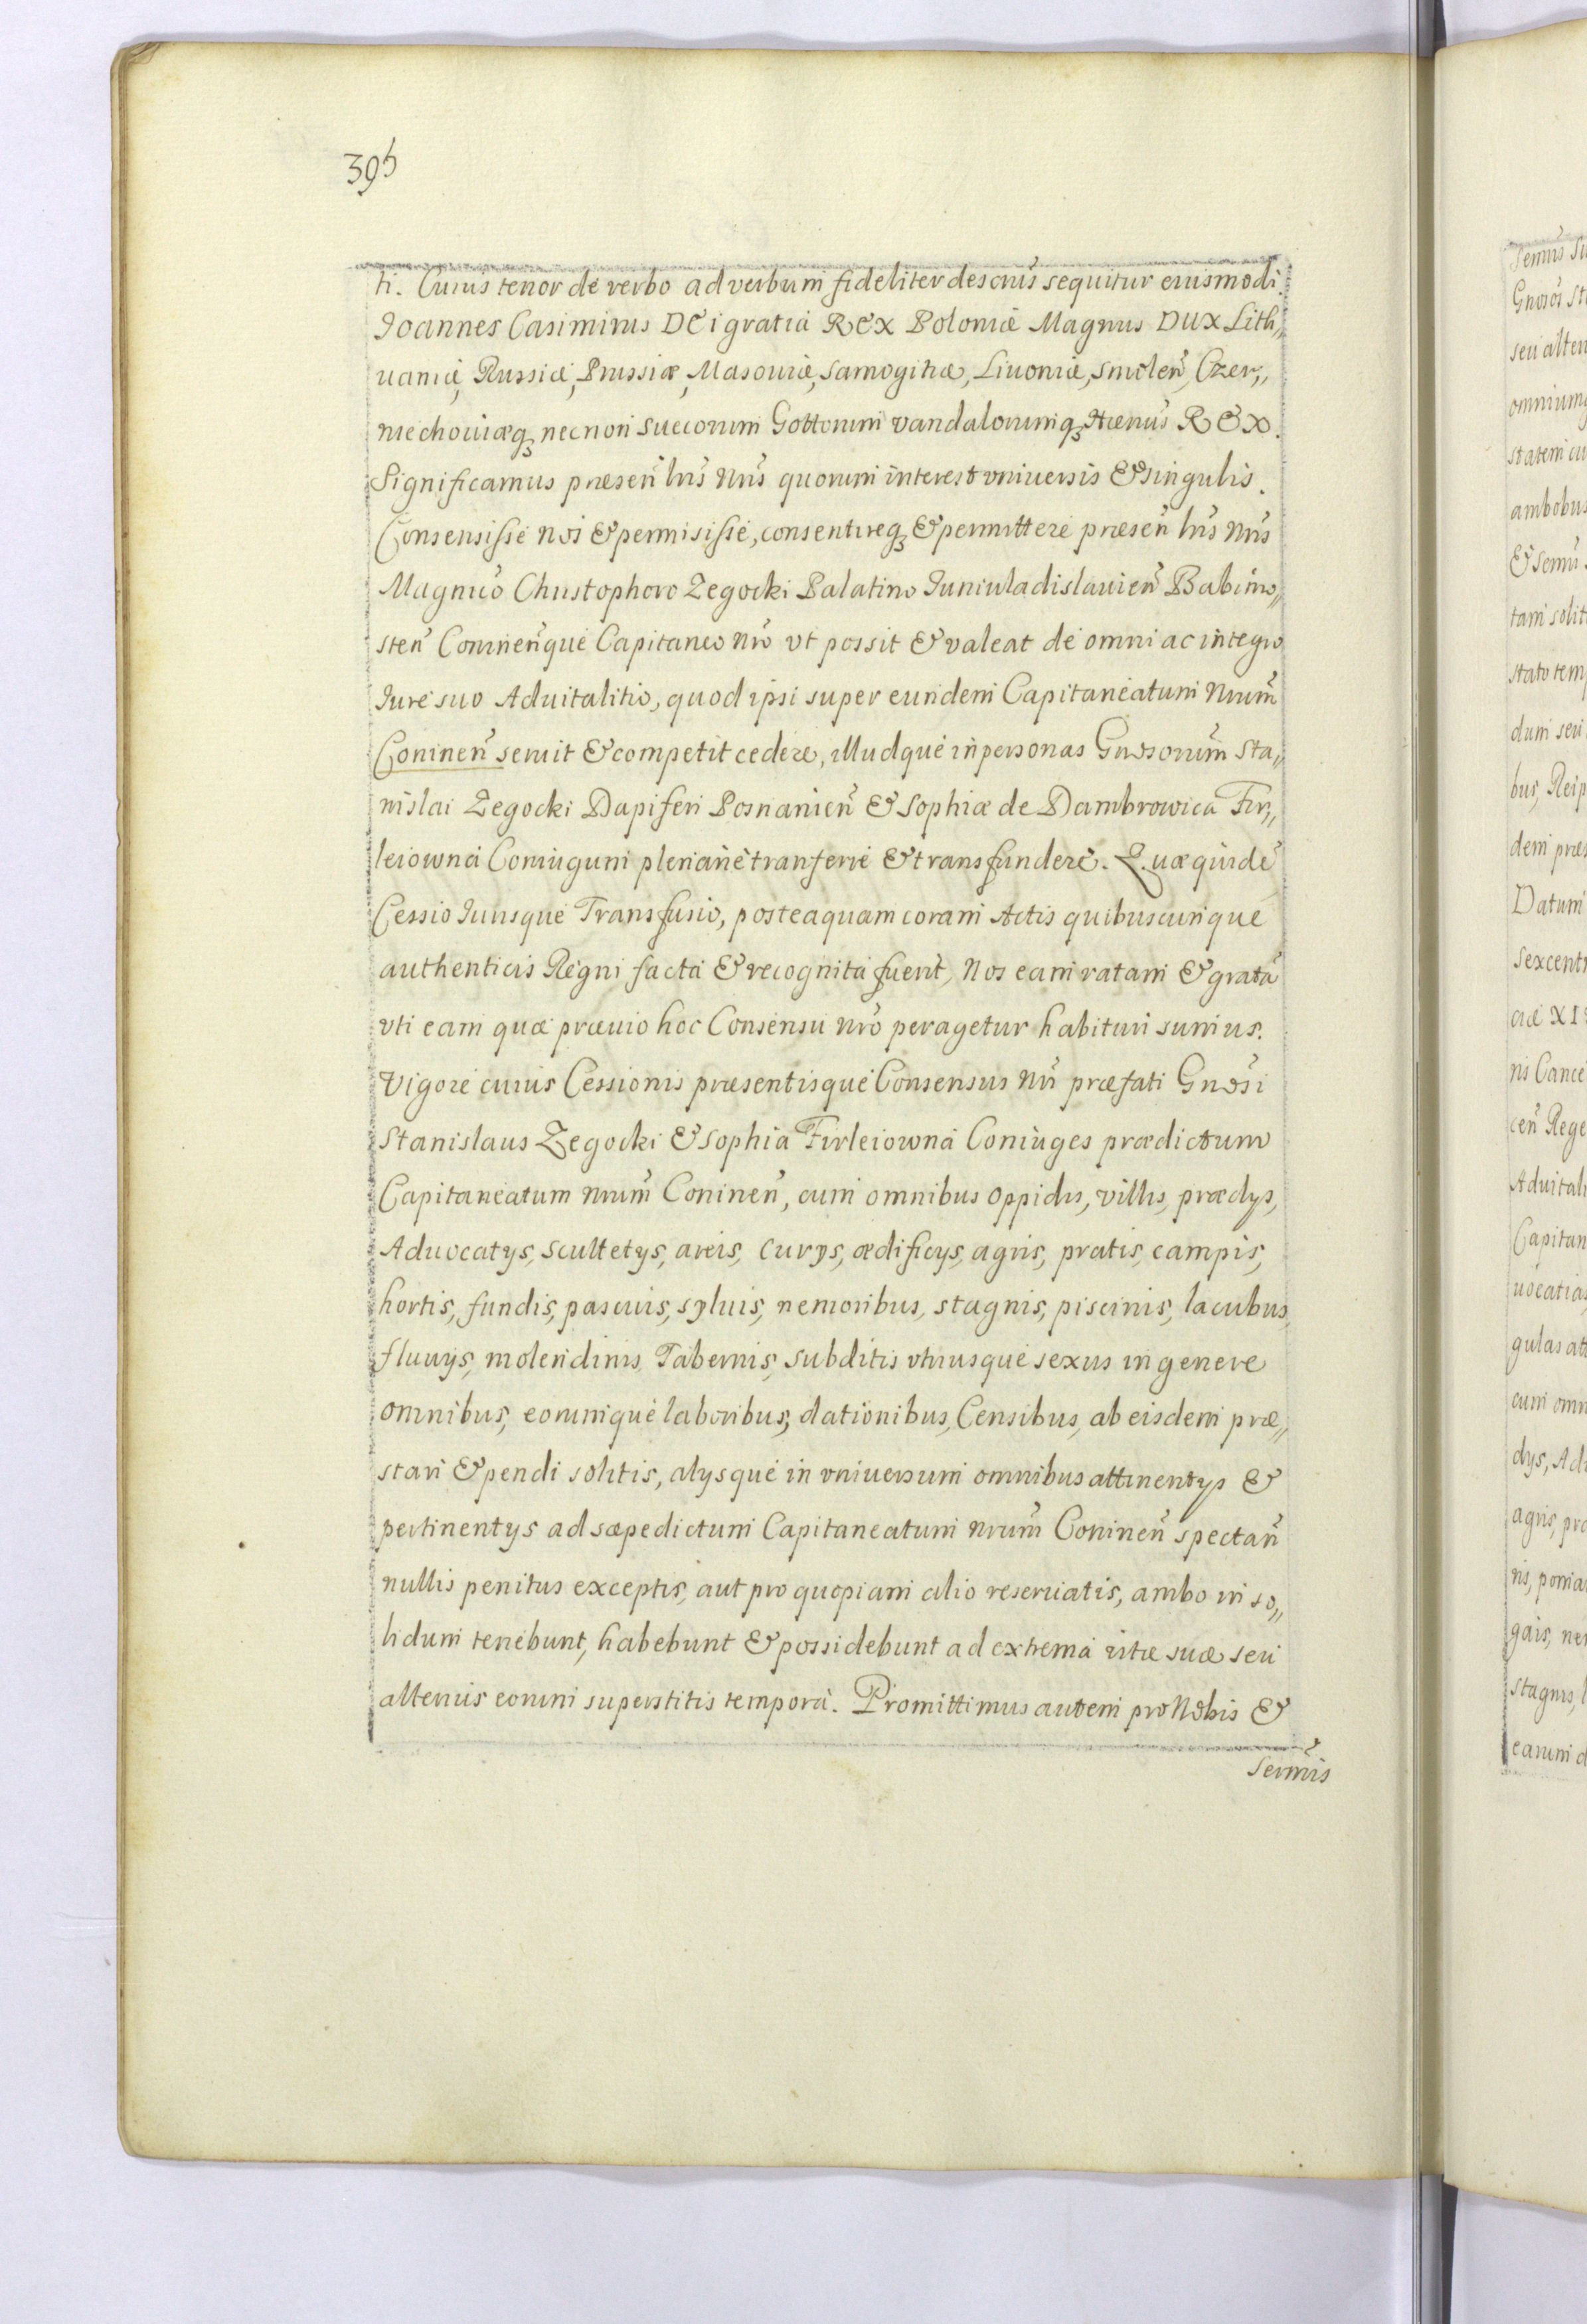 395
ti. Cuius tenor de verbo ad verbum fideliter descriũs sequitur eiusmodi.
Ioannes Casimirus DEi gratia REX Poloniæ Magnus DUX Lith,,
uaniæ, Russiæ, Prussiæ, Masouiæ, Samogitiæ, Liuoniæ, Smoleñ, Czer,,
niechouiæq3 necnon Suecorum Gottorum vandalorumq3 Hæriũs REX.
Significamus præseñ lrĩs nrĩs quorum interest vniuersis & singulis.
Consensisse nos & permisisse, consentireq3 & permittere præseñ lrĩs nrĩs
Magnifĩco Christophoro Zegocki Palatino Iuniuladislauieñ Babimo,,
steñ Conineñque Capitaneo nr̃o vt possit & valeat de omni ac integro
Iure suo Aduitalitio, quod ipsi super eundem Capitaneatum nrũm
Conineñ seruit & competit cedere, illudque in personas Gñosorum Sta,,
nislai Zegocki Dapiferi Posnanieñ & Sophiæ de Dambrowica Fir,,
leiowna Coniugum plenariè tranferre & transfundere. Quæ quidẽ
Cessio Iurisque Transfusio, posteaquam coram Actis quibuscunque
authenticis Regni facta & recognita fuerit, Nos eam ratam & gratã
vti eam quæ præuio hoc Consensu nr̃o peragetur habituri sumus.
Vigore cuius Cessionis præsentisque Consensus nrĩ præfati Gñosi
Stanislaus Zegocki & Sophia Firleiowna Coniuges prædictum
Capitaneatum nrũm Conineñ, cum omnibus oppidis, villis, prædys,
Aduocatys, scultetys, areis, curys, ædificys, agris, pratis, campis,
hortis, fundis, pascuis, syluis, nemoribus, stagnis, piscinis, lacubus,
fluuys, molendinis, Tabernis, subditis vtriusque sexus in genere
omnibus, eorumque laboribus, dationibus, Censibus, ab eisdem præ,,
stari & pendi solitis, alysque in vniuersum omnibus attinentys &
pertinentys ad sæpedictum Capitaneatum nrũm Conineñ spectañ
nullis penitus exceptis, aut pro quopiam alio reseruatis, ambo in so,,
lidum tenebunt, habebunt & possidebunt ad extrema vitæ suæ seu
alterius eorum superstitis tempora. Promittimus autem pro Nobis &
Sermĩs